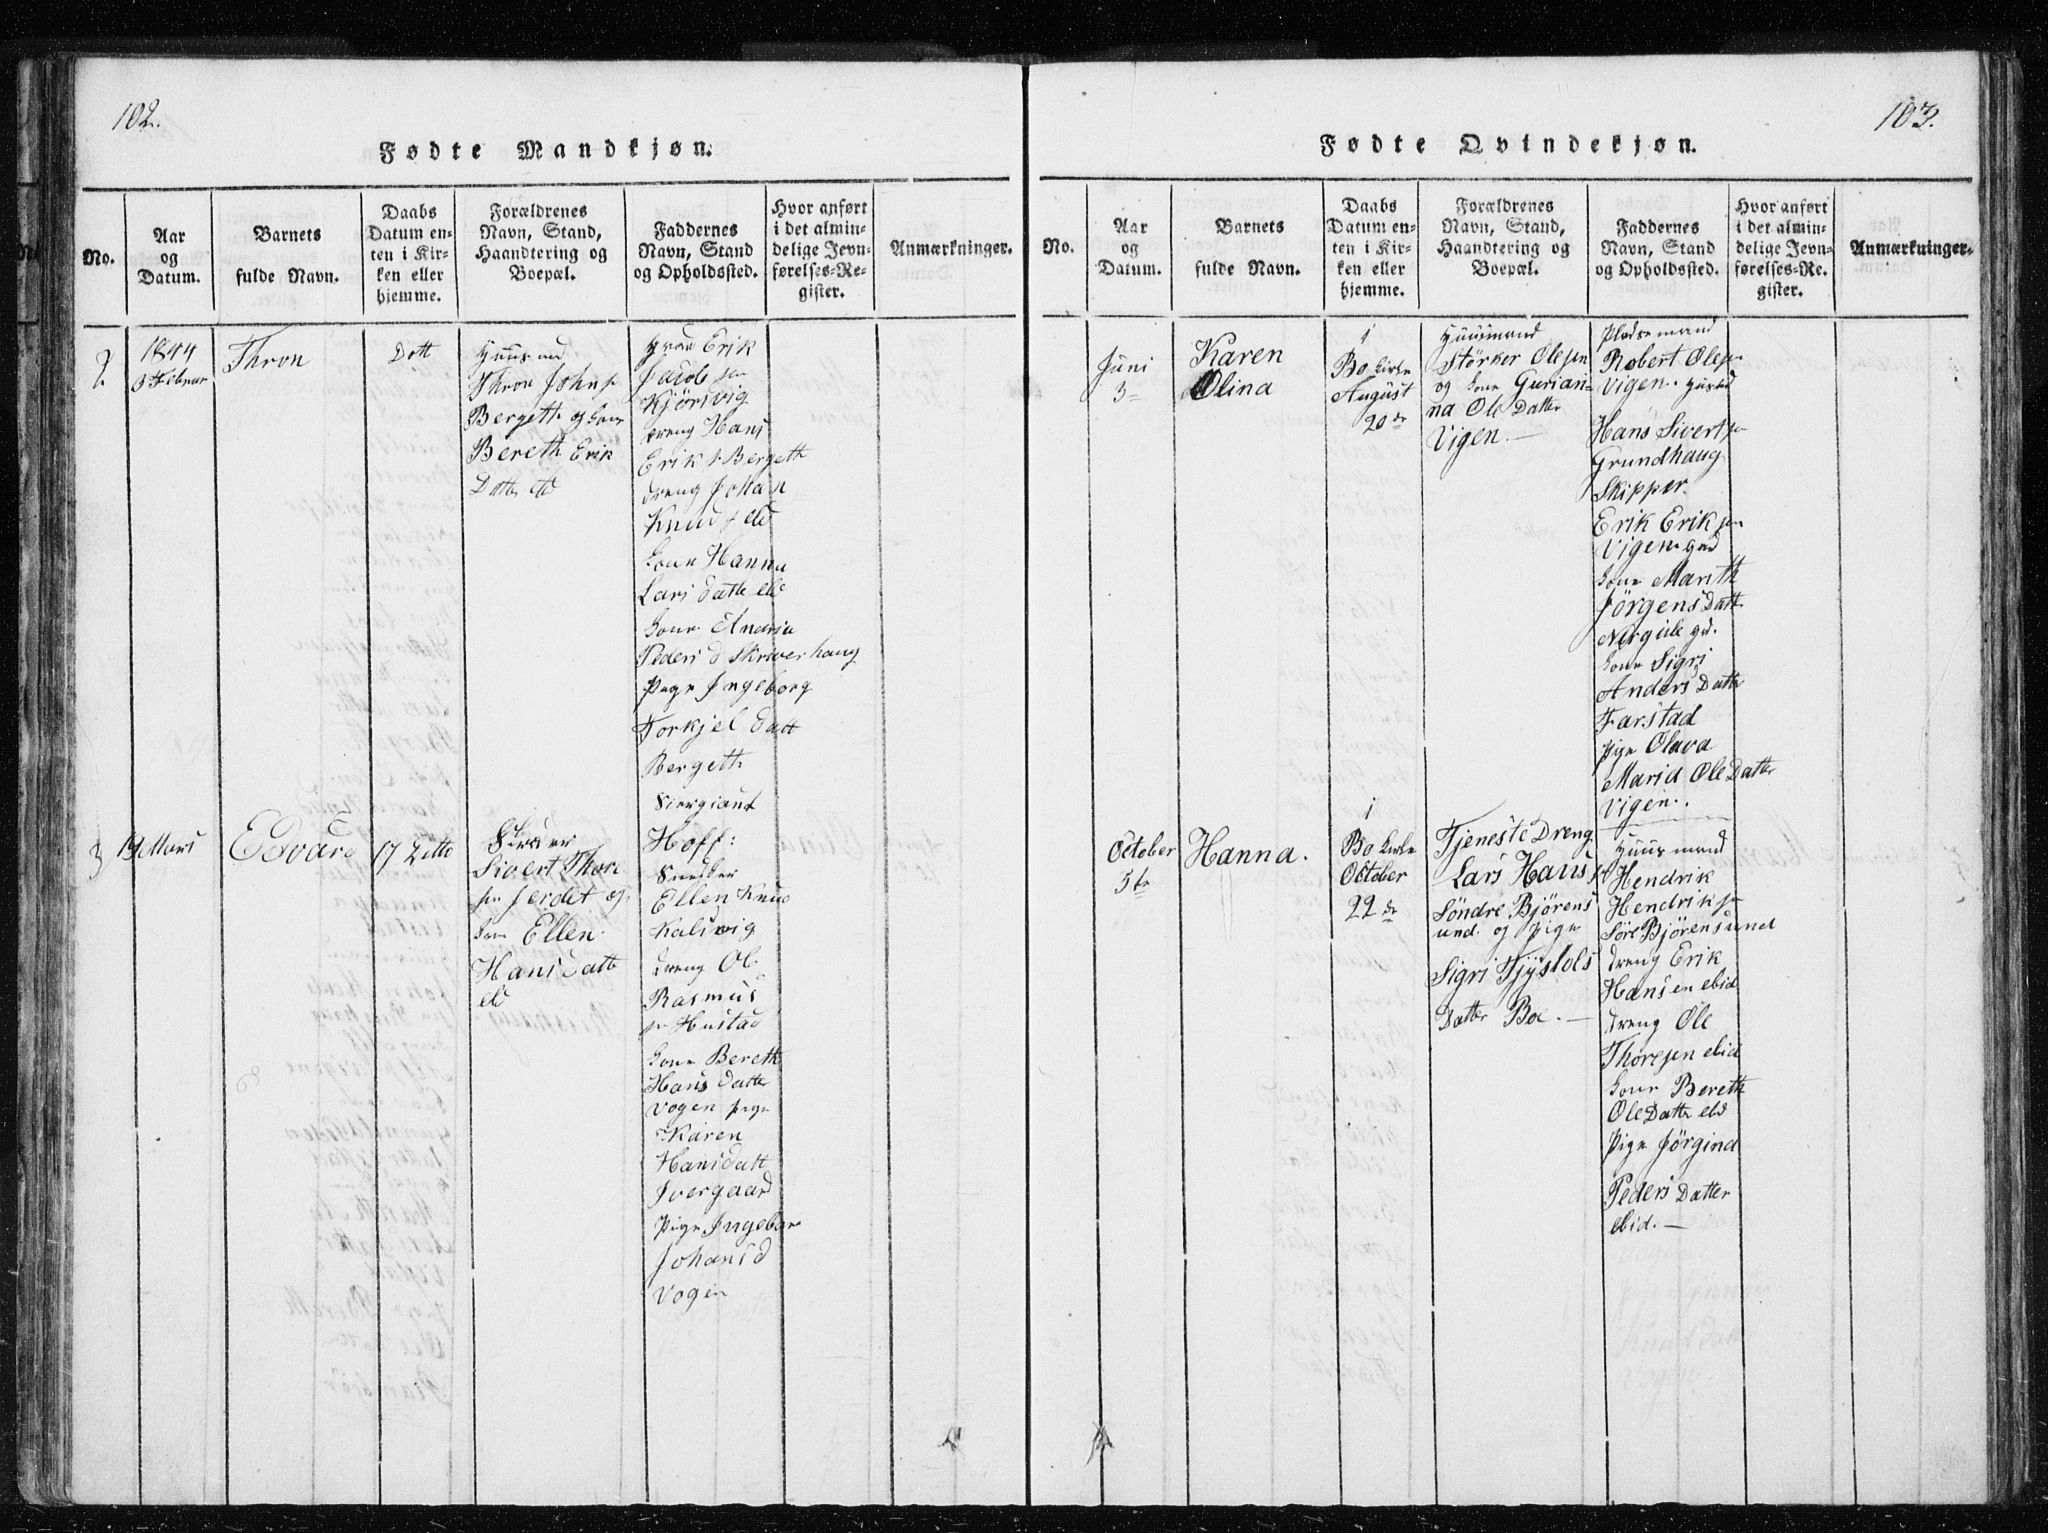 102.
Fødte Mandkjøn.
No.
Aar
og
Datum.
Barnets
fulde Navn.
Daabs
Datum en-
ten i Kir-
ken eller
hjemme.
Forældrenes
Navn, Stand,
Haandtering og
Boepæl.
Faddernes
Navn, Stand
og Opholdssted.
Hvor anført
i det almin-
delige Jevn-
førelses-Re-
gister.
Anmærkninger.
2
1844
3 Februar
Thron
Dott
Thron Johns
Bergeth og Kone
Bereth Erik
Datte eld
Erik
Jacob sen
Kjörsvig
Dreng Hans
Erik s Bergeth
Dreng Johan
Knud s eld
Kone Hanna
Lars Datte eld
Kone Andria
Peders D Skriverhaug
Pige Ingeborg
Torkjel Datt
Bergeth
3
19 Mars
Edvard
17 Ditto
Sivert Thore
sen Ferdet og
Kone Ellen
Hans Datte
eld
Siergiant
Hoff:
Ellen Knud
Kalsvig
Dreng Ole
Rasmus
sen Hustad
Kone Bereth
Hans Datter
Vogen Pige
Karen
Hansdatt
Ivergaard
Pige Ingebor
Johans D
Vogen
103.
Fødte Qvindekjøn.
No.
Aar
og
Datum.
Barnets
fulde Navn.
Daabs
Datum en-
ten i Kir-
ken eller
hjemme.
Forældrenes
Navn, Stand,
Haandtering og
Boepæl.
Faddernes
Navn, Stand
og Opholdssted.
Hvor anført
i det almin-
delige Jevn-
førelses-Re.
gister.
Anmærkninger.
Juni
3
Karen
Olina
i
Bo Kirke
August
20 de
Huusmand
Störker Olesen
og Kone Gurian-
na Ole Datter
Vigen.
Pladsemand
Robert Olesen
Vigen.
Hans Sivertsen
Grundhaug
Skipper.
Erik Eriksen
Vigen.
Kone Marith
Jörgens Datt
Kone Sigri
Anders Datte
Farstad
Pige Olava
Maria Ole Datter
Vigen.
October
5te
Hanna.
i
Bo Kirke
October
22 de
Tjeneste Dreng
Lars Hans
Söndre Björens
und. og Pige
Sigri Tjÿstols
Datter Boe.
Huusmand
Hendrik
Hendriksen
Søre Björensund
Dreng Erik
Hansen ebid
Dreng Ole
Thoresen ebid
Kone Bereth
Ole Datte eld
Pige Jörgind
Peders Datter
ebid.